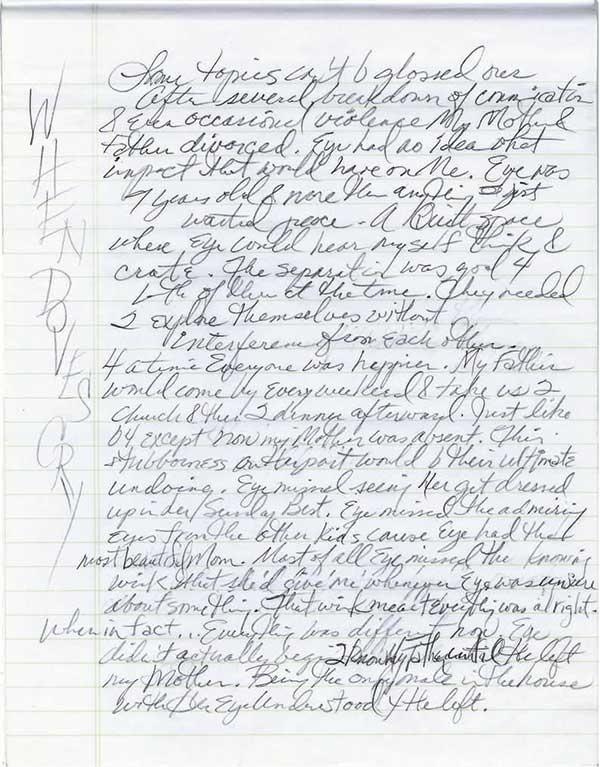 WHEN DOVES CRY
Some topics can't b glossed over
After several breakdown of communication
& even occasional violence My Mother &
Father divorced. Eye had no idea what
impact that would have on Me. Eye was
7 years old & more than anything I just
wanted peace - A Quiet space
where Eye could hear myself think &
create. The separation was good 4
both of them at the time. They needed
2 explore themselves without
interference from each other.
4 a time Everyone was happier. My Father
would come by every weekend & take us 2
church & then 2 dinner afterward. Just like
b4 except now my Mother was absent. This
stubborness on her part would b their ultimate
undoing. Eye missed seeing Her get dressed
up in her Sunday Best. Eye missed the admiring
eyes from the other kids cause Eye had the
most beautiful Mom. Most of all Eye missed the knowing
wink that she'd give me whenever Eye was unsure
about something. That wink meant Everything was alright.
when in fact... Everything was different now. Eye
didn't actually begin 2 know my father until he left
my Mother. Being the only male in the house
with her Eye Understood Y he left.